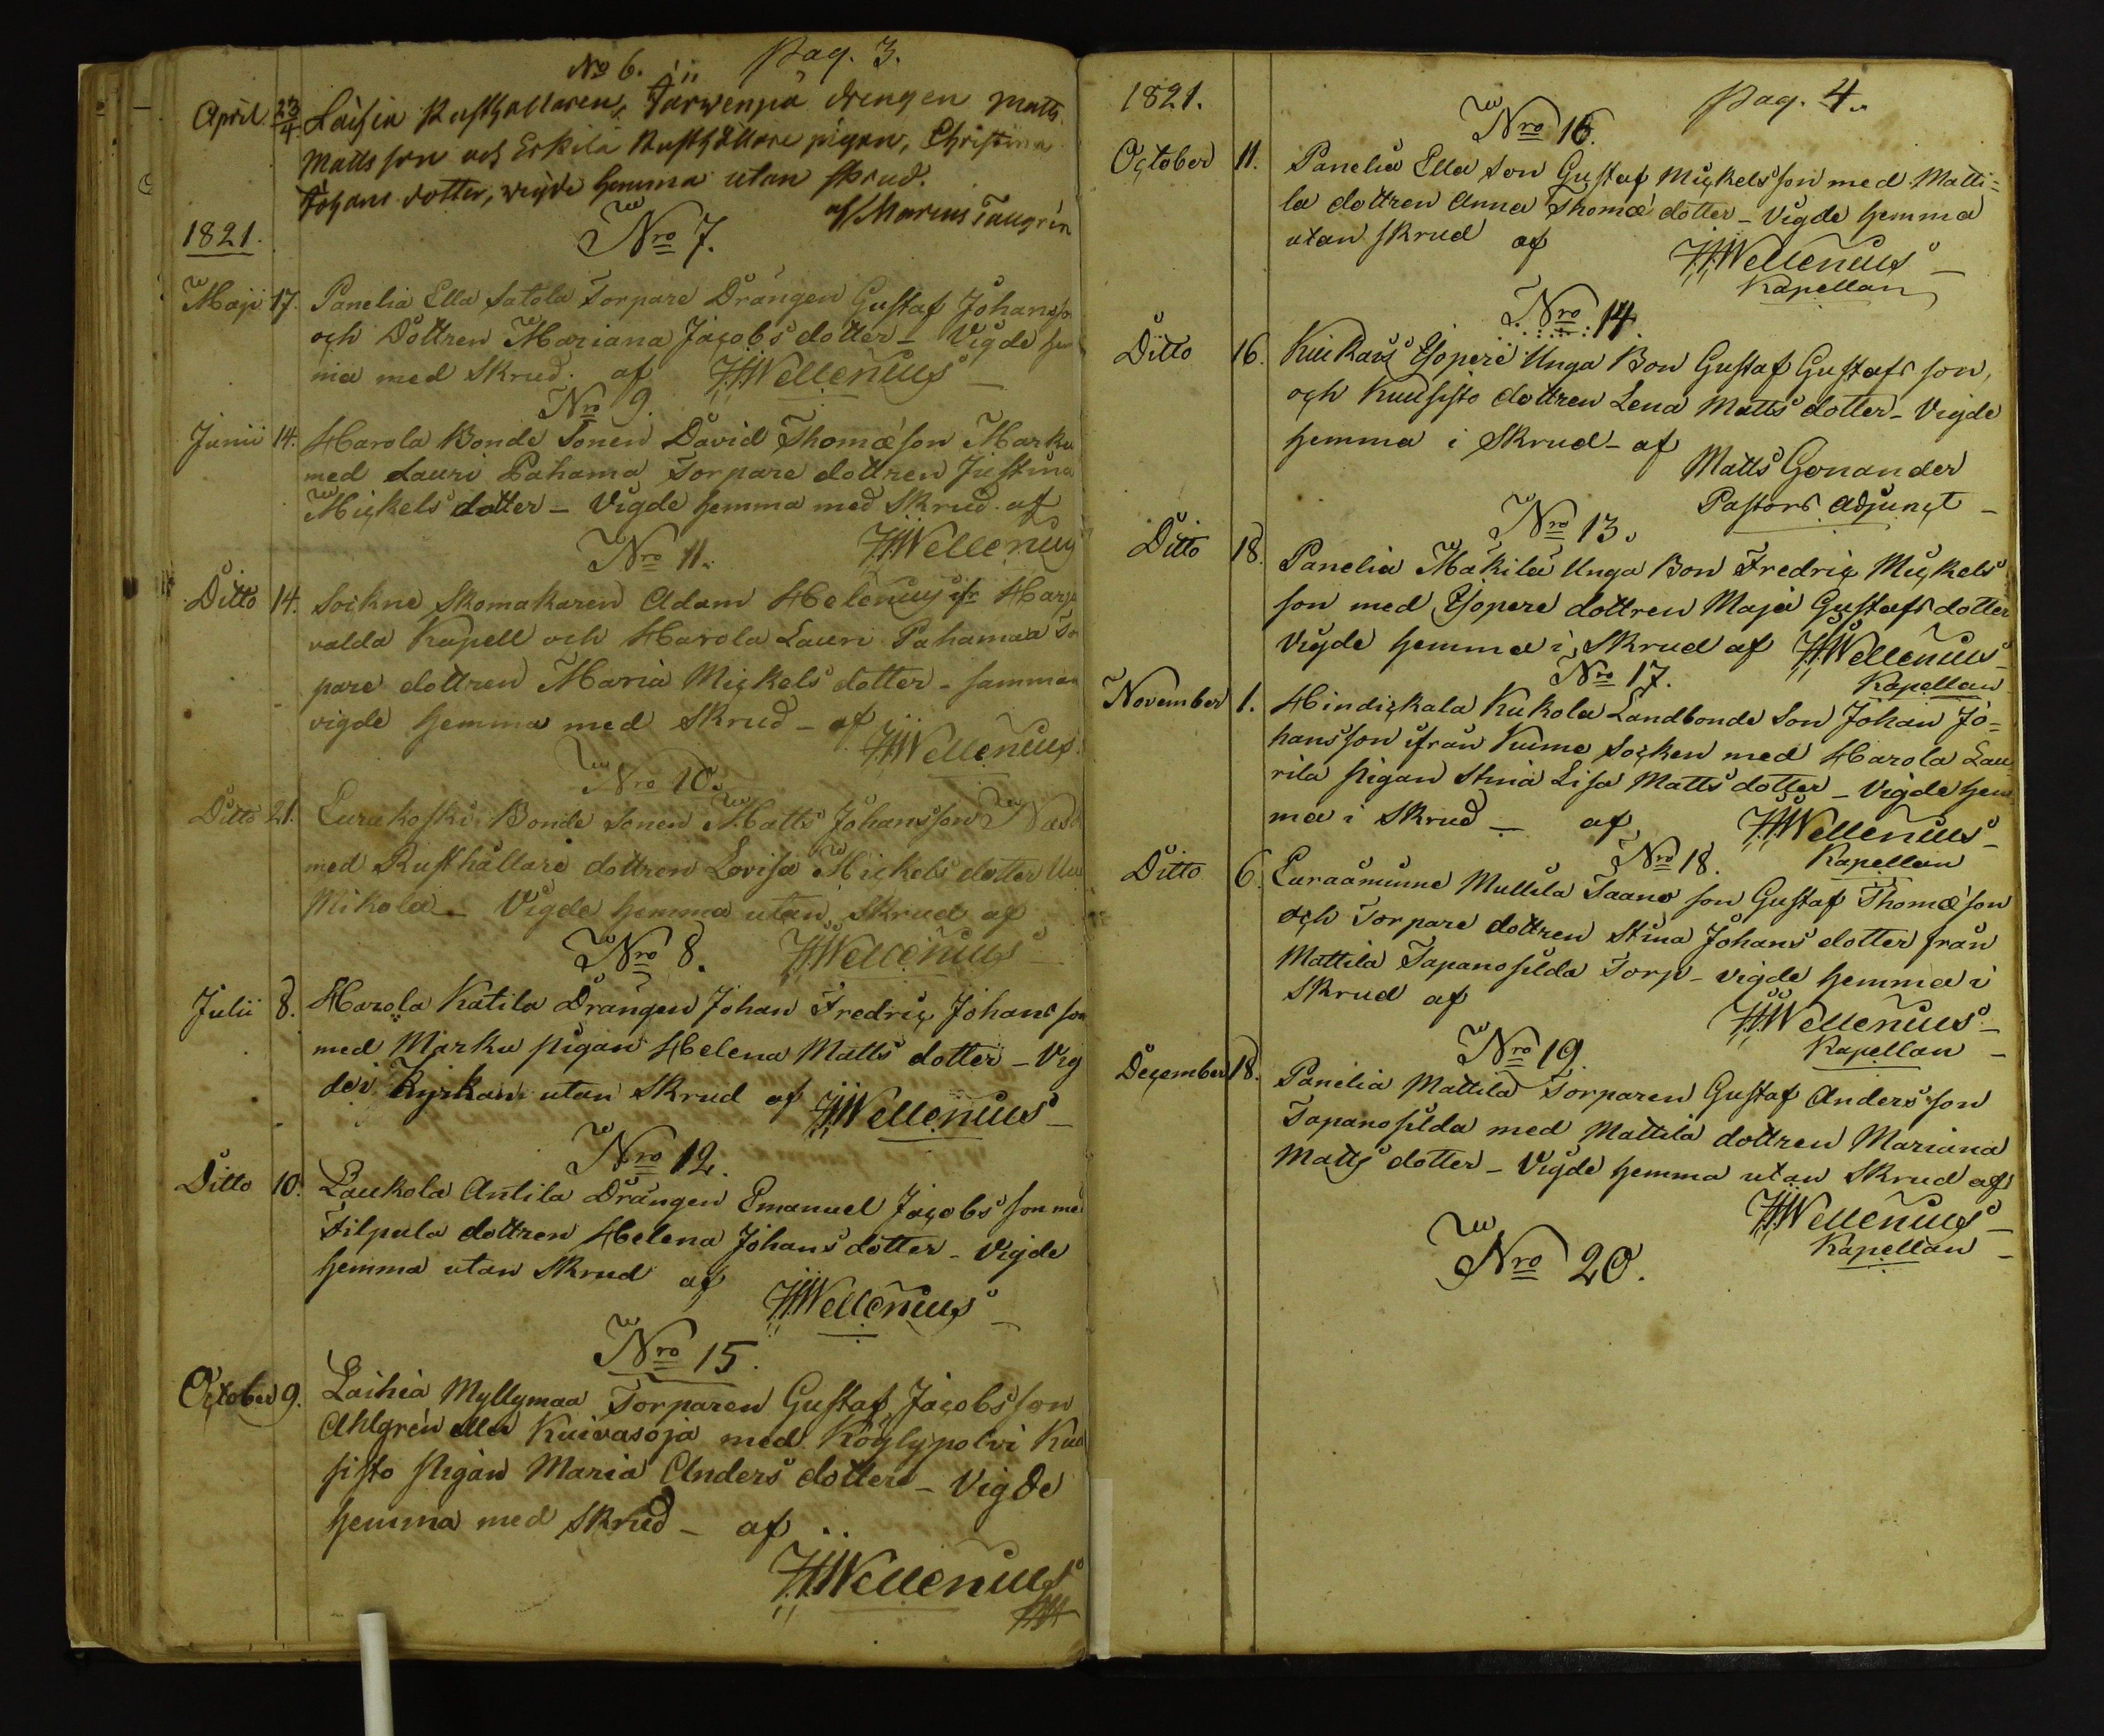 No 6. Pag. 3.
April 23/4 Laihia Rusthållaren, Tarvenpä drengen Matts
Matts son och Eskila Rusthållare pigan, Christina
Johans dotter, vigde hemma utan skrud.
af Marcus Taugrén
1821. Nro 7.
Maji 17. Panelia Ella Satola Torpare Drängen Gustaf Johansso
och Dottren Mariana Jacobs dotter – Vigde hem
ma med Skrud. af HWellenius –
Nro 9.
Junii 14. Harola Bonde Sonen David Thomæ son Marku
med Lauri Pahama Torpare dottren Justina
Mickels dotter – Vigde hemma med Skrud. af
Nro 11. HWellenius
Ditto 14. Sockne Skomakaren Adam Helenius ifr Harja
valda Kapell och Harola Lauri Pahamaa To
pare dottren Maria Mickels dotter – samman
vigde hemma med Skrud – af
HWellenius.
Nro 10.
Ditto 21. Eurakoski Bonde Sonen Matts Johans son
med Rusthållare dottren Lovisa Mickels dotter Uu
Mikola – Vigde hemma utan Skrud af
Nro 8. HWellenius –
Julii 8. Harola Katila Drängen Johan Fredric Johans son
med Marku pigan Helena Matts dotter – Vig
de i Kyrkan utan Skrud af HWellenius –
Nro 12.
Ditto 10. Laukola Antila Drängen Emanuel Jacobs son me
Filpula dottren Helena Johans dotter – Vigde
hemma utan Skrud af
HWellenius –
Nro 15.
October 9. Laihia Myllymaa Torparen Gustaf Jacobs son
Ahlgrén eller Kuivasoja med Köylypolvi Kuu
sisto pigan Maria Anders dotter – Vigde
hemma med Skrud – af
HWellenius
1821. Pag. 4.
Nro 16.
October 11. Panelia Ella Son Gustaf Mickels son med Matti=
la dottren Anna Thomæ dotter – Vigde hemma
utan skrud af HWellenius –
Kapellan
Nro 14.
Ditto 16. Kiukais Yopere Unga Bon Gustaf Gustafs son,
och Kuusisto dottren Lena Matts dotter – Vigde
hemma i Skrud – af
Matts Gonander
Pastors Adjunct –
Nro 13.
Ditto 18. Panelia Mäkilä Unga Bon Fredric Mickels
son med Yopere dottren Maja Gustafs dotter
Vigde hemma i Skrud af HWellenius –
Nro 17. Kapellan
November 1. Hindickala Kukola Landbonde Son Johan Jo=
hans son ifrån Kumo Socken med Harola Lau
rila pigan Stina Lisa Matts dotter – Vigde hem
ma i Skrud – af HWellenius –
Nro 18. Kapellan
Ditto 6. Euraåminne Mullila Taano son Gustaf Thomæ son
och Torpare dottren Stina Johans dotter från
Mattila Tapanosilda Torp – vigde hemma i
Skrud af HWellenius –
Nro 19. Kapellan –
December 18. Panelia Mattila Torparen Gustaf Anders son
Tapanosilda med Mattila dottren Mariana
Matts dotter – Vigde hemma utan Skrud af
HWellenius –
Kapellan –
Nro 20.